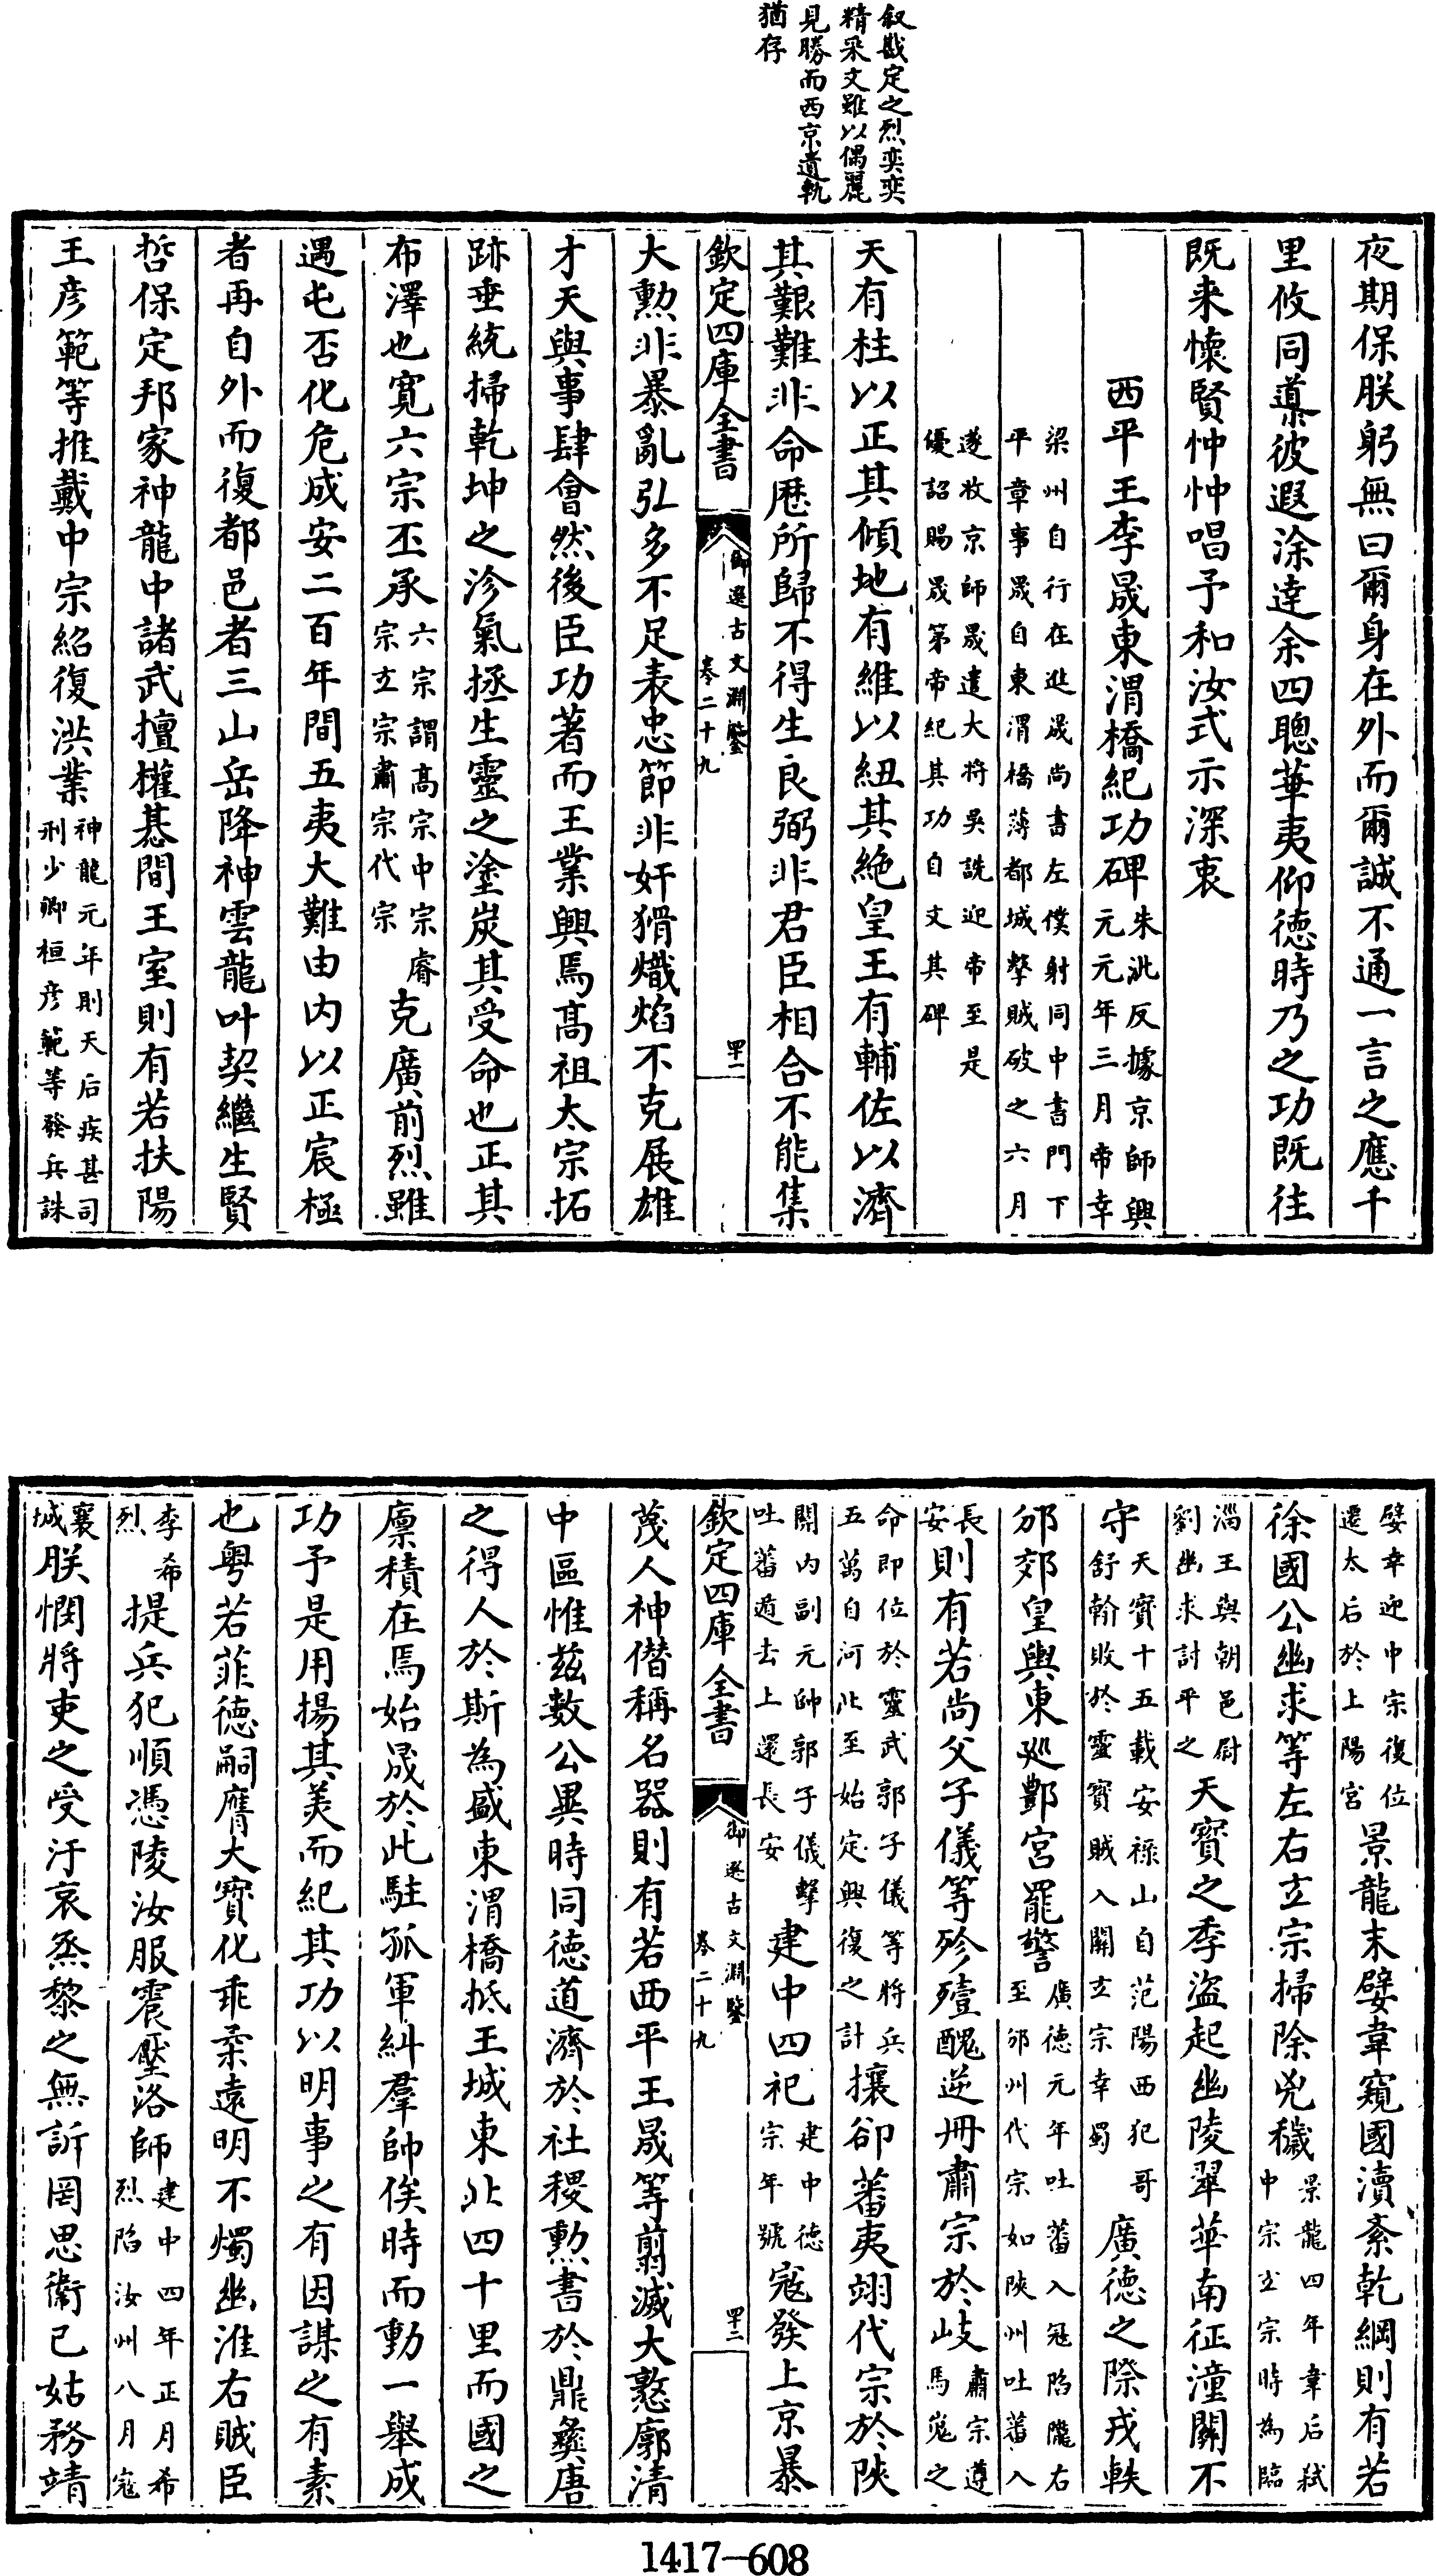 叙戡定之烈奕奕
精采文雖以偶麗
見勝而西京遺軌
猶存
夜期保朕躬無曰爾身在外而爾誠不通一言之應千
里攸同導彼遐涂達余四聰華夷仰德時乃之功既往
既来懷賢忡忡唱予和汝式示深衷
西平王李晟東渭橋紀功碑朱泚反據京師興
元元年三月帝幸
梁州自行在進晟尚書左僕射同中書門下
平章事晟自東渭橋薄都城擊賊破之六月
遂收京師晟遣大将吳詵迎帝至是
優詔賜晟第帝紀其功自文其碑
天有柱以正其傾地有維以紐其絶皇王有輔佐以濟
其艱難非命厯所歸不得生良弼非君臣相合不能集
欽定四庫全書
御選古文淵鑒
卷二十九
四十一
大勲非暴亂弘多不足表忠節非奸猾熾焰不克展雄
才天與事肆會然後臣功著而王業興焉髙祖太宗拓
跡垂統掃乾坤之沴氣拯生靈之塗炭其受命也正其
布澤也寛六宗丕承六宗謂髙宗中宗睿
宗玄宗肅宗代宗
克廣前烈雖
遇屯否化危成安二百年間五夷大難由内以正宸極
者再自外而復都邑者三山岳降神雲龍叶契繼生賢
哲保定邦家神龍中諸武擅權惎間王室則有若扶陽
王彦範等推戴中宗紹復洪業神龍元年則天后疾甚司
刑少卿桓彦範等發兵誅
嬖幸迎中宗復位
遷太后於上陽宮
景龍末嬖韋窺國瀆紊乾綱則有若
徐國公幽求等左右玄宗掃除兇穢景龍四年韋后弑
中宗玄宗時為臨
淄王與朝邑尉
劉幽求討平之
天寳之季盜起幽陵翠華南征潼關不
守天寳十五載安禄山自范陽西犯哥
舒翰敗於靈寳賊入關玄宗幸蜀
廣德之際戎軼
邠郊皇輿東廵酆宮罷警廣德元年吐蕃入冦陷隴右
至邠州代宗如陜州吐蕃入
長
安
則有若尚父子儀等殄殪醜逆冊肅宗於岐肅宗遵
馬嵬之
命即位於靈武郭子儀等将兵
五萬自河北至始定興復之計
攘卻蕃夷翊代宗於陜
關内副元帥郭子儀擊
吐蕃遁去上還長安
建中四祀建中德
宗年號
寇發上京暴
欽定四庫全書
御選古文淵鑒
卷二十九
四十二
蔑人神僣稱名器則有若西平王晟等翦滅大憝廓清
中區惟兹數公異時同德道濟於社稷勲書於鼎彝唐
之得人於斯為盛東渭橋抵王城東北四十里而國之
廩積在焉始晟於此駐孤軍糾羣帥俟時而動一舉成
功予是用揚其美而紀其功以明事之有因謀之有素
也粤若菲德嗣膺大寳化乖柔遠明不燭幽淮右賊臣
李希
烈
提兵犯順憑陵汝服震壓洛師建中四年正月希
烈陷汝州八月寇
襄
城
朕憫將吏之受汙哀烝黎之無訴罔思衛己姑務靖
1417—608